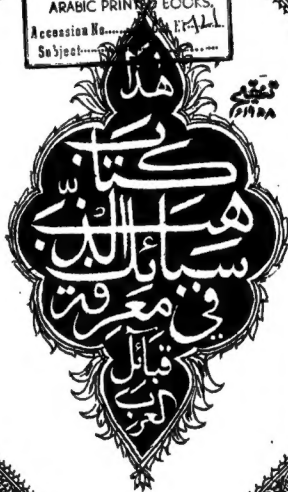 ARABIC PRINTED BOOKS.
Accession No.
Subject
هذا
كتاب
سبائك الذهب
في معرفة
قبائل
العرب